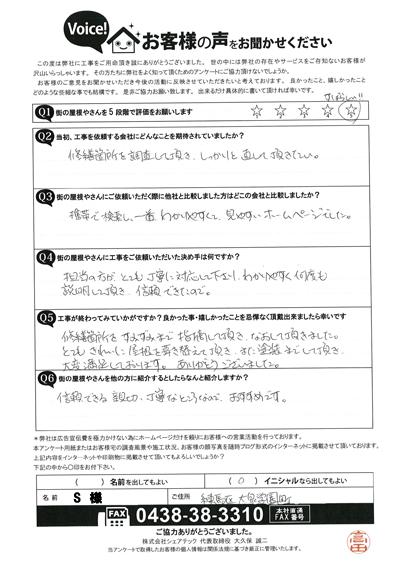 Voice!
お客様の声をお聞かせください
この度は弊社に工事をご用命頂き誠にありがとうございました。世の中には弊社の存在やサービスをご存知ないお客様が
沢山いらっしゃいます。その方たちに弊社をよく知って頂くためのアンケートにご協力頂けないでしょうか。
お客様のご意見をお聞かせいただき今後の活動に反映させていただきたいと考えております。良かったこと、嬉しかったこと
どのような些細な事でも結構です。是非ご協力お願い致します。出来るだけ具体的に書いて頂ければ幸いです。
すばらしい!!
Q1 街の屋根やさんを5段階で評価をお願いします ☆ ☆ ☆ ☆ ☆
Q2 当初、工事を依頼する会社にどんなことを期待されていましたか?
修繕箇所を調査して頂き、しっかりと直して頂きたい。
Q3 街の屋根やさんにご依頼いただく際に他社と比較しました方はどこの会社と比較しましたか?
携帯で検索し、一番わかりやすくて、見やすいホームページでした。
Q4 街の屋根やさんに工事をご依頼いただいた決め手は何ですか?
担当の方が、とても丁寧に対応して下さり、わかりやすく何度も
説明して頂き、信頼できたので。
Q5 工事が終わってみていかがですか?良かった事・嬉しかったことを忌憚なく頂戴出来ましたら幸いです
修繕箇所をすみずみまで指摘して頂き、なおして頂きました。
とてもきれいに屋根を葺き替えて頂き、また塗装までして頂き、
大変満足しております。ありがとうございました。
Q6 街の屋根やさんを他の方に紹介するとしたらなんと紹介しますか?
信頼できる、親切、丁寧なところなので、おすすめです。
＊弊社は広告宣伝費を極力かけない為にホームページだけを頼りにお客様への営業活動を行っております。
本アンケート用紙またはお客様宅の調査風景や施工状況、お客様の顔写真を随時ブログ形式のインターネットに掲載させて頂いております。
上記内容をインターネットや印刷物に掲載させて頂いてもよろしいでしょうか?
下記の中から○印をお付下さい。
( )名前を出してもよい (○)イニシャルなら出してもよい
名前 S 様 ご住所 練馬区大泉学園町
FAX 0438-38-3310 本社直通 FAX番号
ご協力ありがとうございました。
株式会社シェアテック 代表取締役 大久保 誠二
当アンケートで取得したお客様の個人情報は関係法規に基づき厳正に管理いたします。